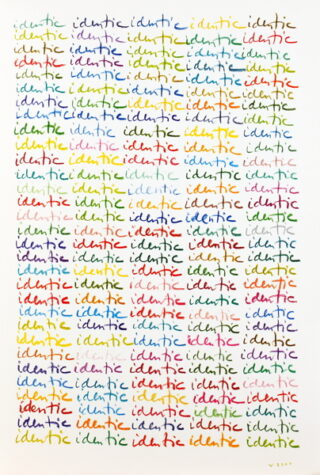 identic identic identic identic identic
identic identic identic identic identic
identic identic identic identic identic
identic identic identic identic identic
identic identic identic identic identic
identic identic identic identic identic
identic identic identic identic identic
identic identic identic identic identic
identic identic identic identic identic
identic identic identic identic identic
identic identic identic identic identic
identic identic identic identic identic
identic identic identic identic identic
identic identic identic identic identic
identic identic identic identic identic
identic identic identic identic identic
identic identic identic identic identic
identic identic identic identic identic
identic identic identic identic identic
identic identic identic identic identic
identic identic identic identic identic
identic identic identic identic identic
identic identic identic identic identic
identic identic identic identic identic
identic identic identic identic identic
identic identic identic identic identic
identic identic identic identic identic
identic identic identic identic identic
identic identic identic identic identic
identic identic identic identic identic
identic identic identic identic identic